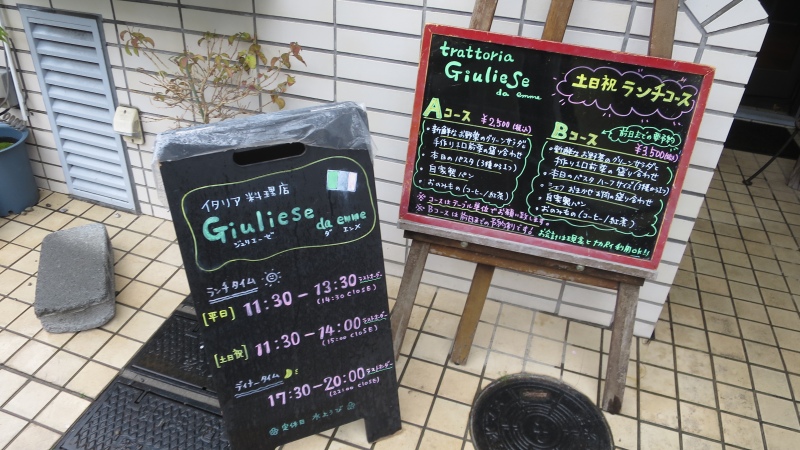 イタリア料理店
Giuliese da emme
ジュリエーゼ ダ エンメ
ランチタイム
[平日] 11:30-13:30 ラストオーダー
(14:30 CLOSE)
[土日祝] 11:30-14:00 ラストオーダー
(15:00 CLOSE)
ディナータイム
17:30-20:00 ラストオーダー
(22:00 CLOSE)
定休日
trattoria
Giuliese
da emme
土日祝 ランチコース
Aコース ¥2,500(税込)
・新鮮なお野菜のグリーンサラダ
手作り入口前菜の盛り合わせ
・本日のパスタ(3種から1つ)
・自家製パン
・おのみもの(コーヒー/紅茶)
Bコース 前日までの要予約
¥3,500(税込)
・新鮮なお野菜のグリーンサラダ
手作り入口前菜の盛り合わせ
・本日のパスタ ハーフサイズ(3種から1つ)
・シェフおまかせお肉の盛り合わせ
・自家製パン
・おのみもの(コーヒー/紅茶)
※コースはテーブル単位でお願い致します
※Bコースは前日までの予約制です。
お会計は現金とナカペイ利用OK!!